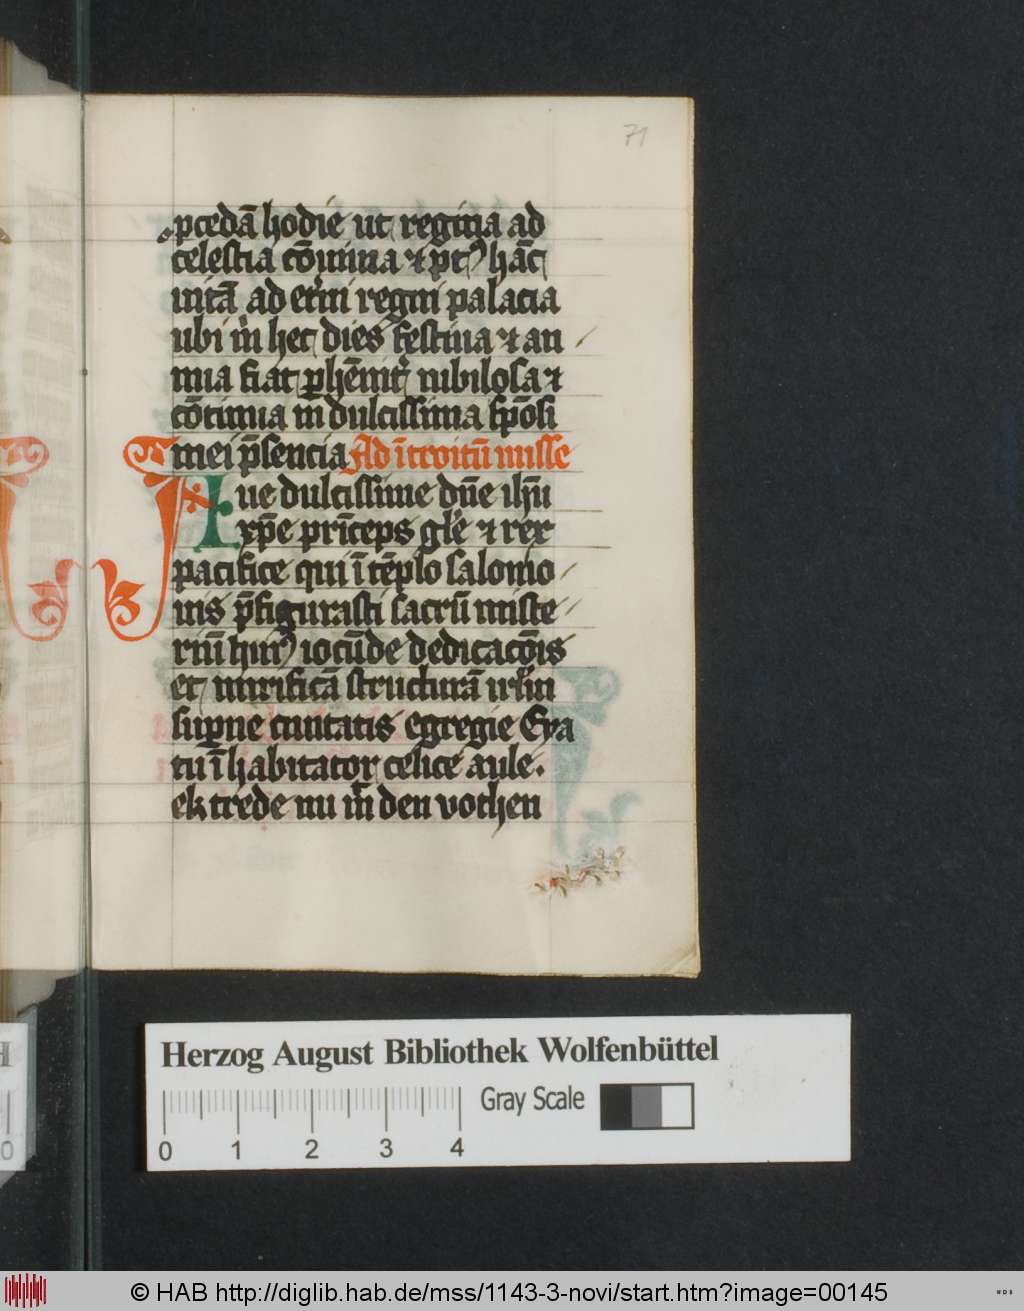 71
p̄cedā hodie ut regina ad
celestia cōniuia ⁊ ptꝰ hāc
uitā ad et̄ni regni palacia
ubi m̄ hec dies festiua ⁊ an
nua fiat ꝑhēnit̄ nibilosa ⁊
cōtinua in dulcissima spōsi
mei p̄sencia Ad ītroitū misse
Aue dulcissime dn̄e ihū
xp̄e prīceps gl̄e ⁊ rex
pacifice qui ī tēplo salomo
nis p̄figurasti sacrū miste
riū huiꝰ iocūde dedicacōis
et mirificā structurā irlm̄
suꝑne ciuitatis egregie Eya
tu īhabitator celice aule.
ek trede nu m̄ den vothen
Herzog August Bibliothek Wolfenbüttel
Gray Scale
0 1 2 3 4
© HAB http://diglib.hab.de/mss/1143-3-novi/start.htm?image=00145